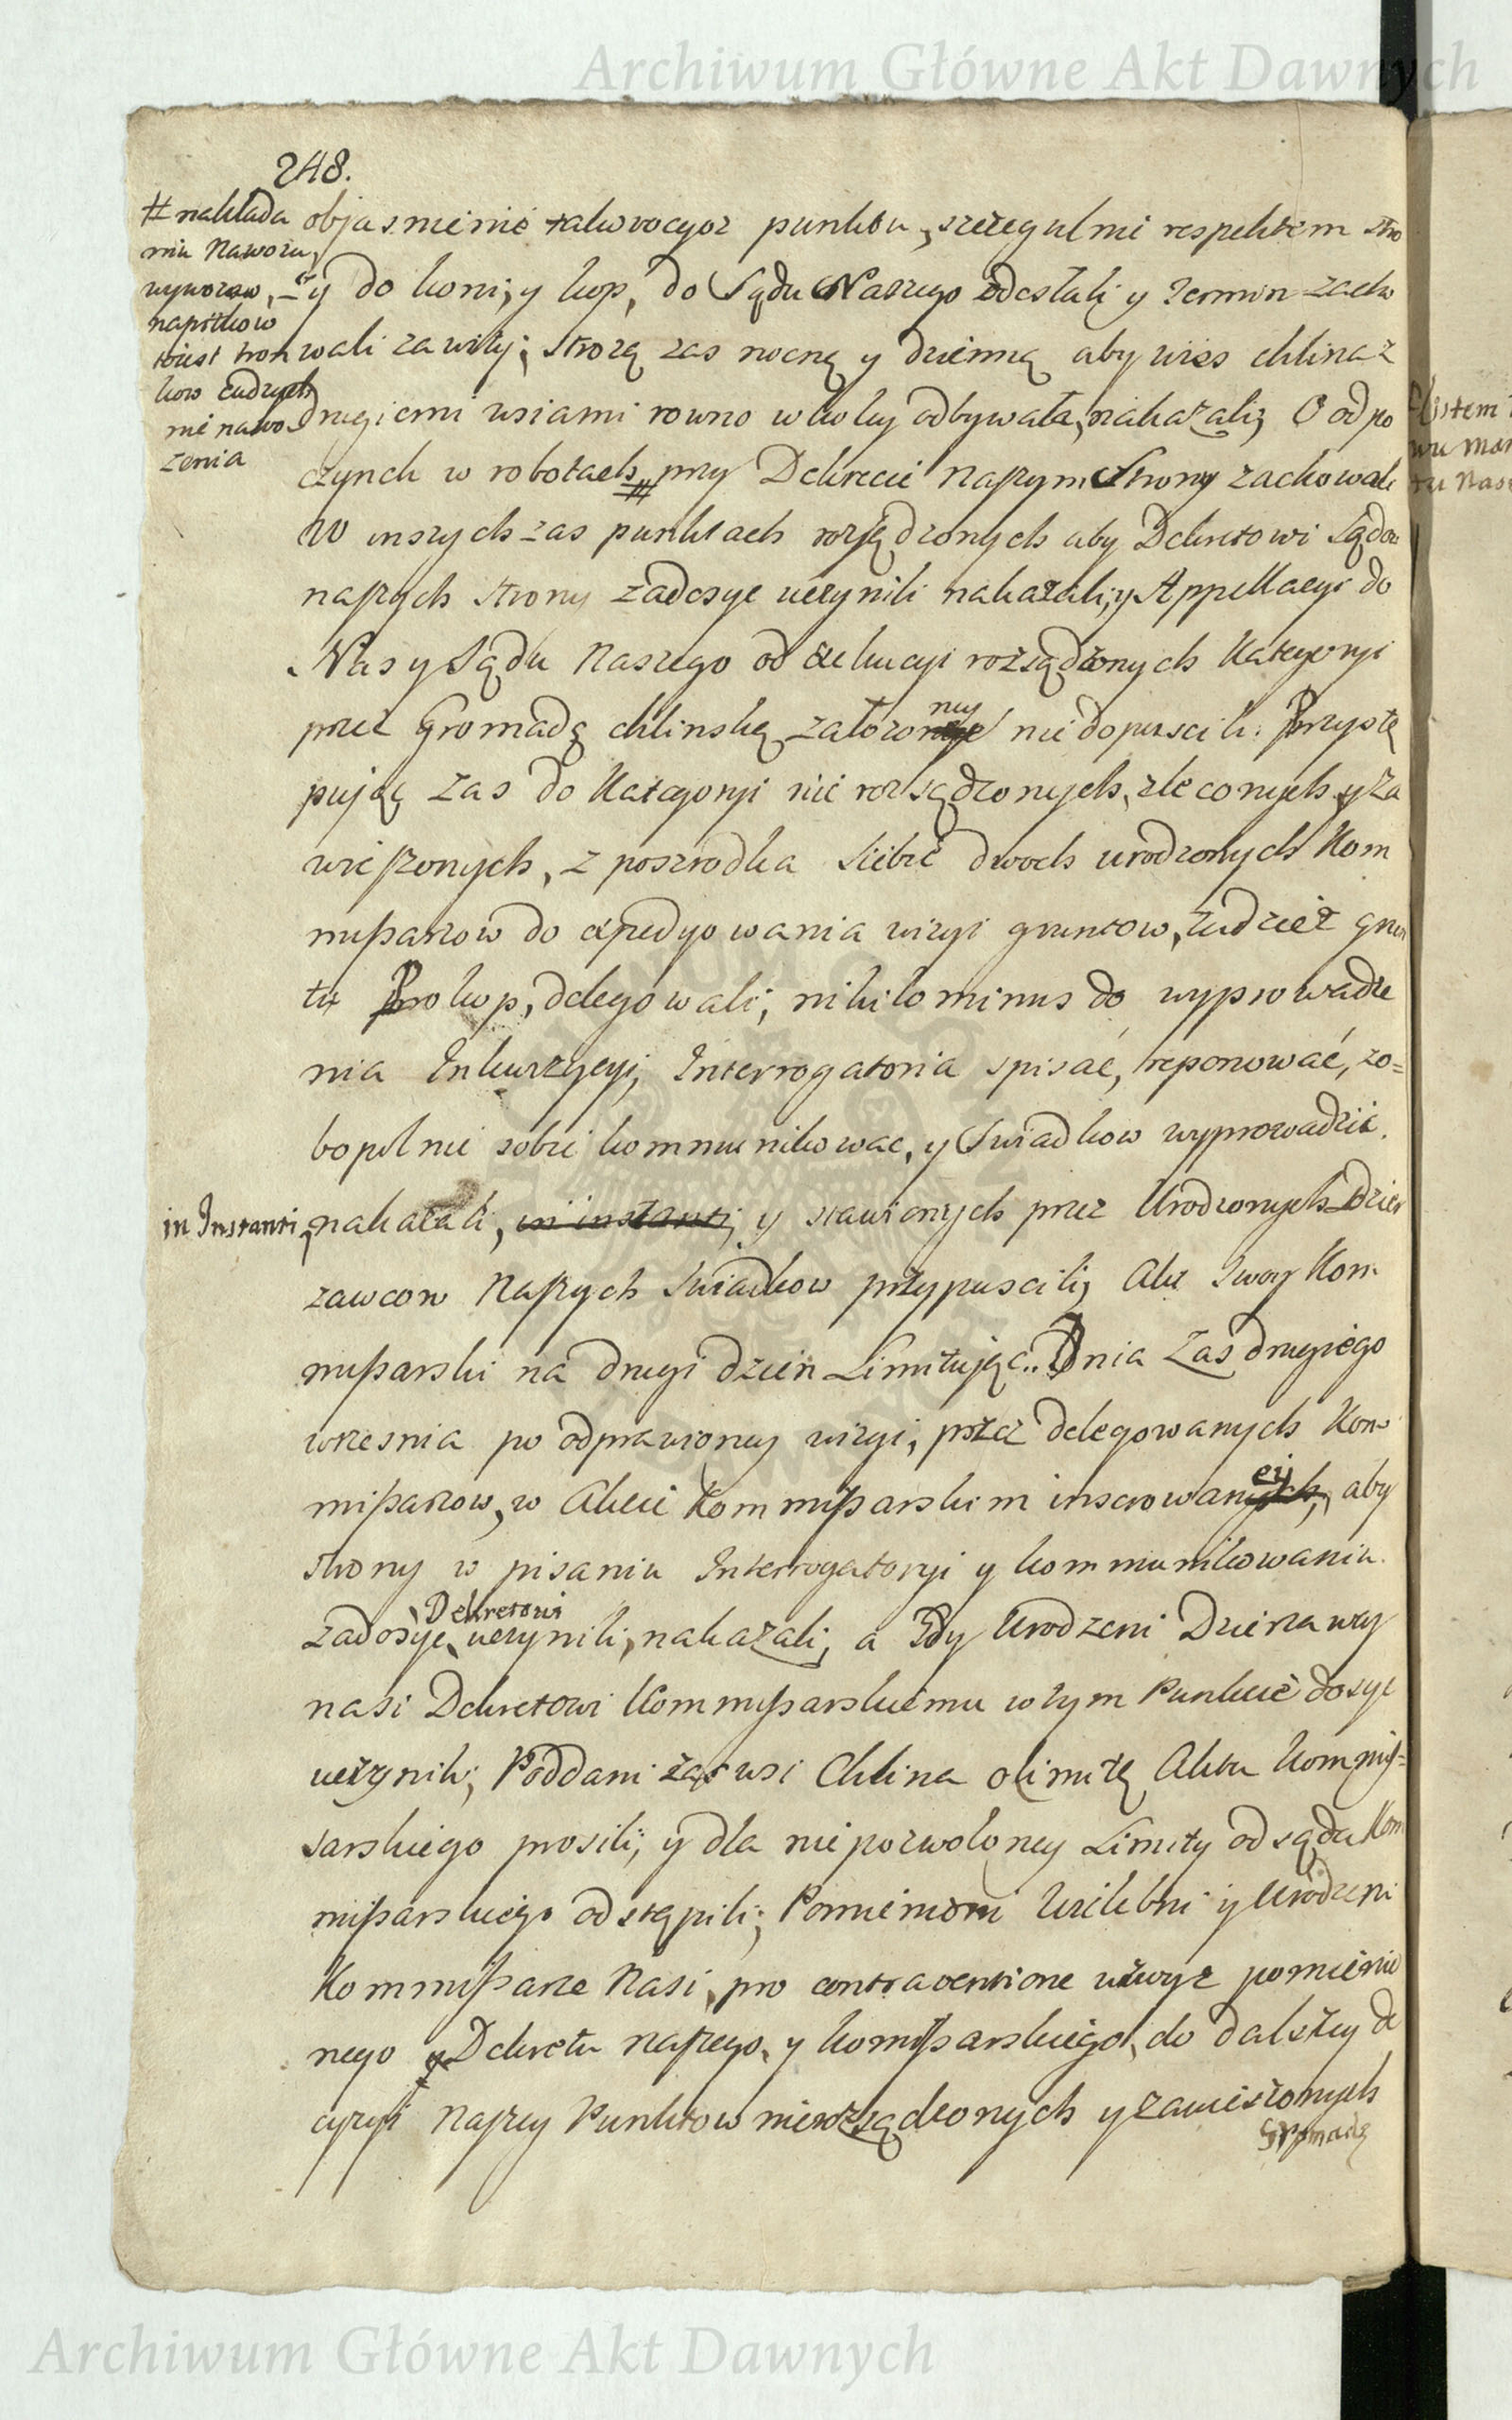 Archiwum Główne Akt Dawnych
248.
# nakłada
niu Nawozu,
wywozow,
napitkow
miast
kow cudzych
nie nawo
zenia
objasnienie takowoczo punktu, szczegulnie respektem stro
zy do koni, y kop, do Sądu Naszego odesłali y Termin zacho
wali zawity; strozą zas nocną y dzienną aby wies chlina z
drugiemi wsiami rowno w koley odbywała, nakazali; O odpo
czynch w robotach # przy Dekrecie naszym Strony zachowali
W inszych zas punktach rozsądzonych aby Dekretowi Sądow
naszych strony zadosyc uczynili nakazali; y Appellacyi do
Nas y Sądu Naszego od exekucyi rozsądzonych Kategoryi
przez Gromadę chlinską załozoney nie dopuscili. Przystę
pując zas do Kategoryi nie rozsądzonych, zleconych y za
wieszonych, z poszrodka siebie dwoch urodzonych Kom
missarzow do expedyowania wizyi gruntow, tudziez grun
tu Prokop, delegowali; nihilominus do wyprowadze
nia Inkwizycyi, Interrogatoria spisać, reponować, zo=
bopolnie sobie kommunikowac, y Swiadkow wyprowadzic
in Instanti, nakazali, in instanti, y stawionych przez Urodzonych Dzier
zawcow Naszych Swiadkow przypuscili; Akt swoy Kom
missarski na drugi dzien Limitując. Dnia Zas drugiego
wrzesnia po odprawioney wizyi, przez delegowanych Kom
missarzow, w Akcie Kommissarskim inserowanych, ey aby
strony w pisaniu Interrogatoryi y kommunikowaniu
zadosyc Dekretowi uczynili, nakazali, a Gdy Urodzeni Dzierzawcy
nasi Dekretowi Kommissarskiemu w tym Punkcie dosyc
uczynili; Poddani zas wsi Chlina o limitę Aktu Kommis=
sarskiego prosili, y dla nie pozwoloney Limity od sądu Kom
missarskiego odstąpili; Pomienieni Wielebni y Urodzeni
Kommissarze Nasi, pro contraventione wzwyz pomienio
nego y Dekretu naszego, y kommissarskiego, do dalszey de
cyzyi naszey Punktow nierozsądzonych y zawieszonych
Gromadę
Archiwum Główne Akt Dawnych